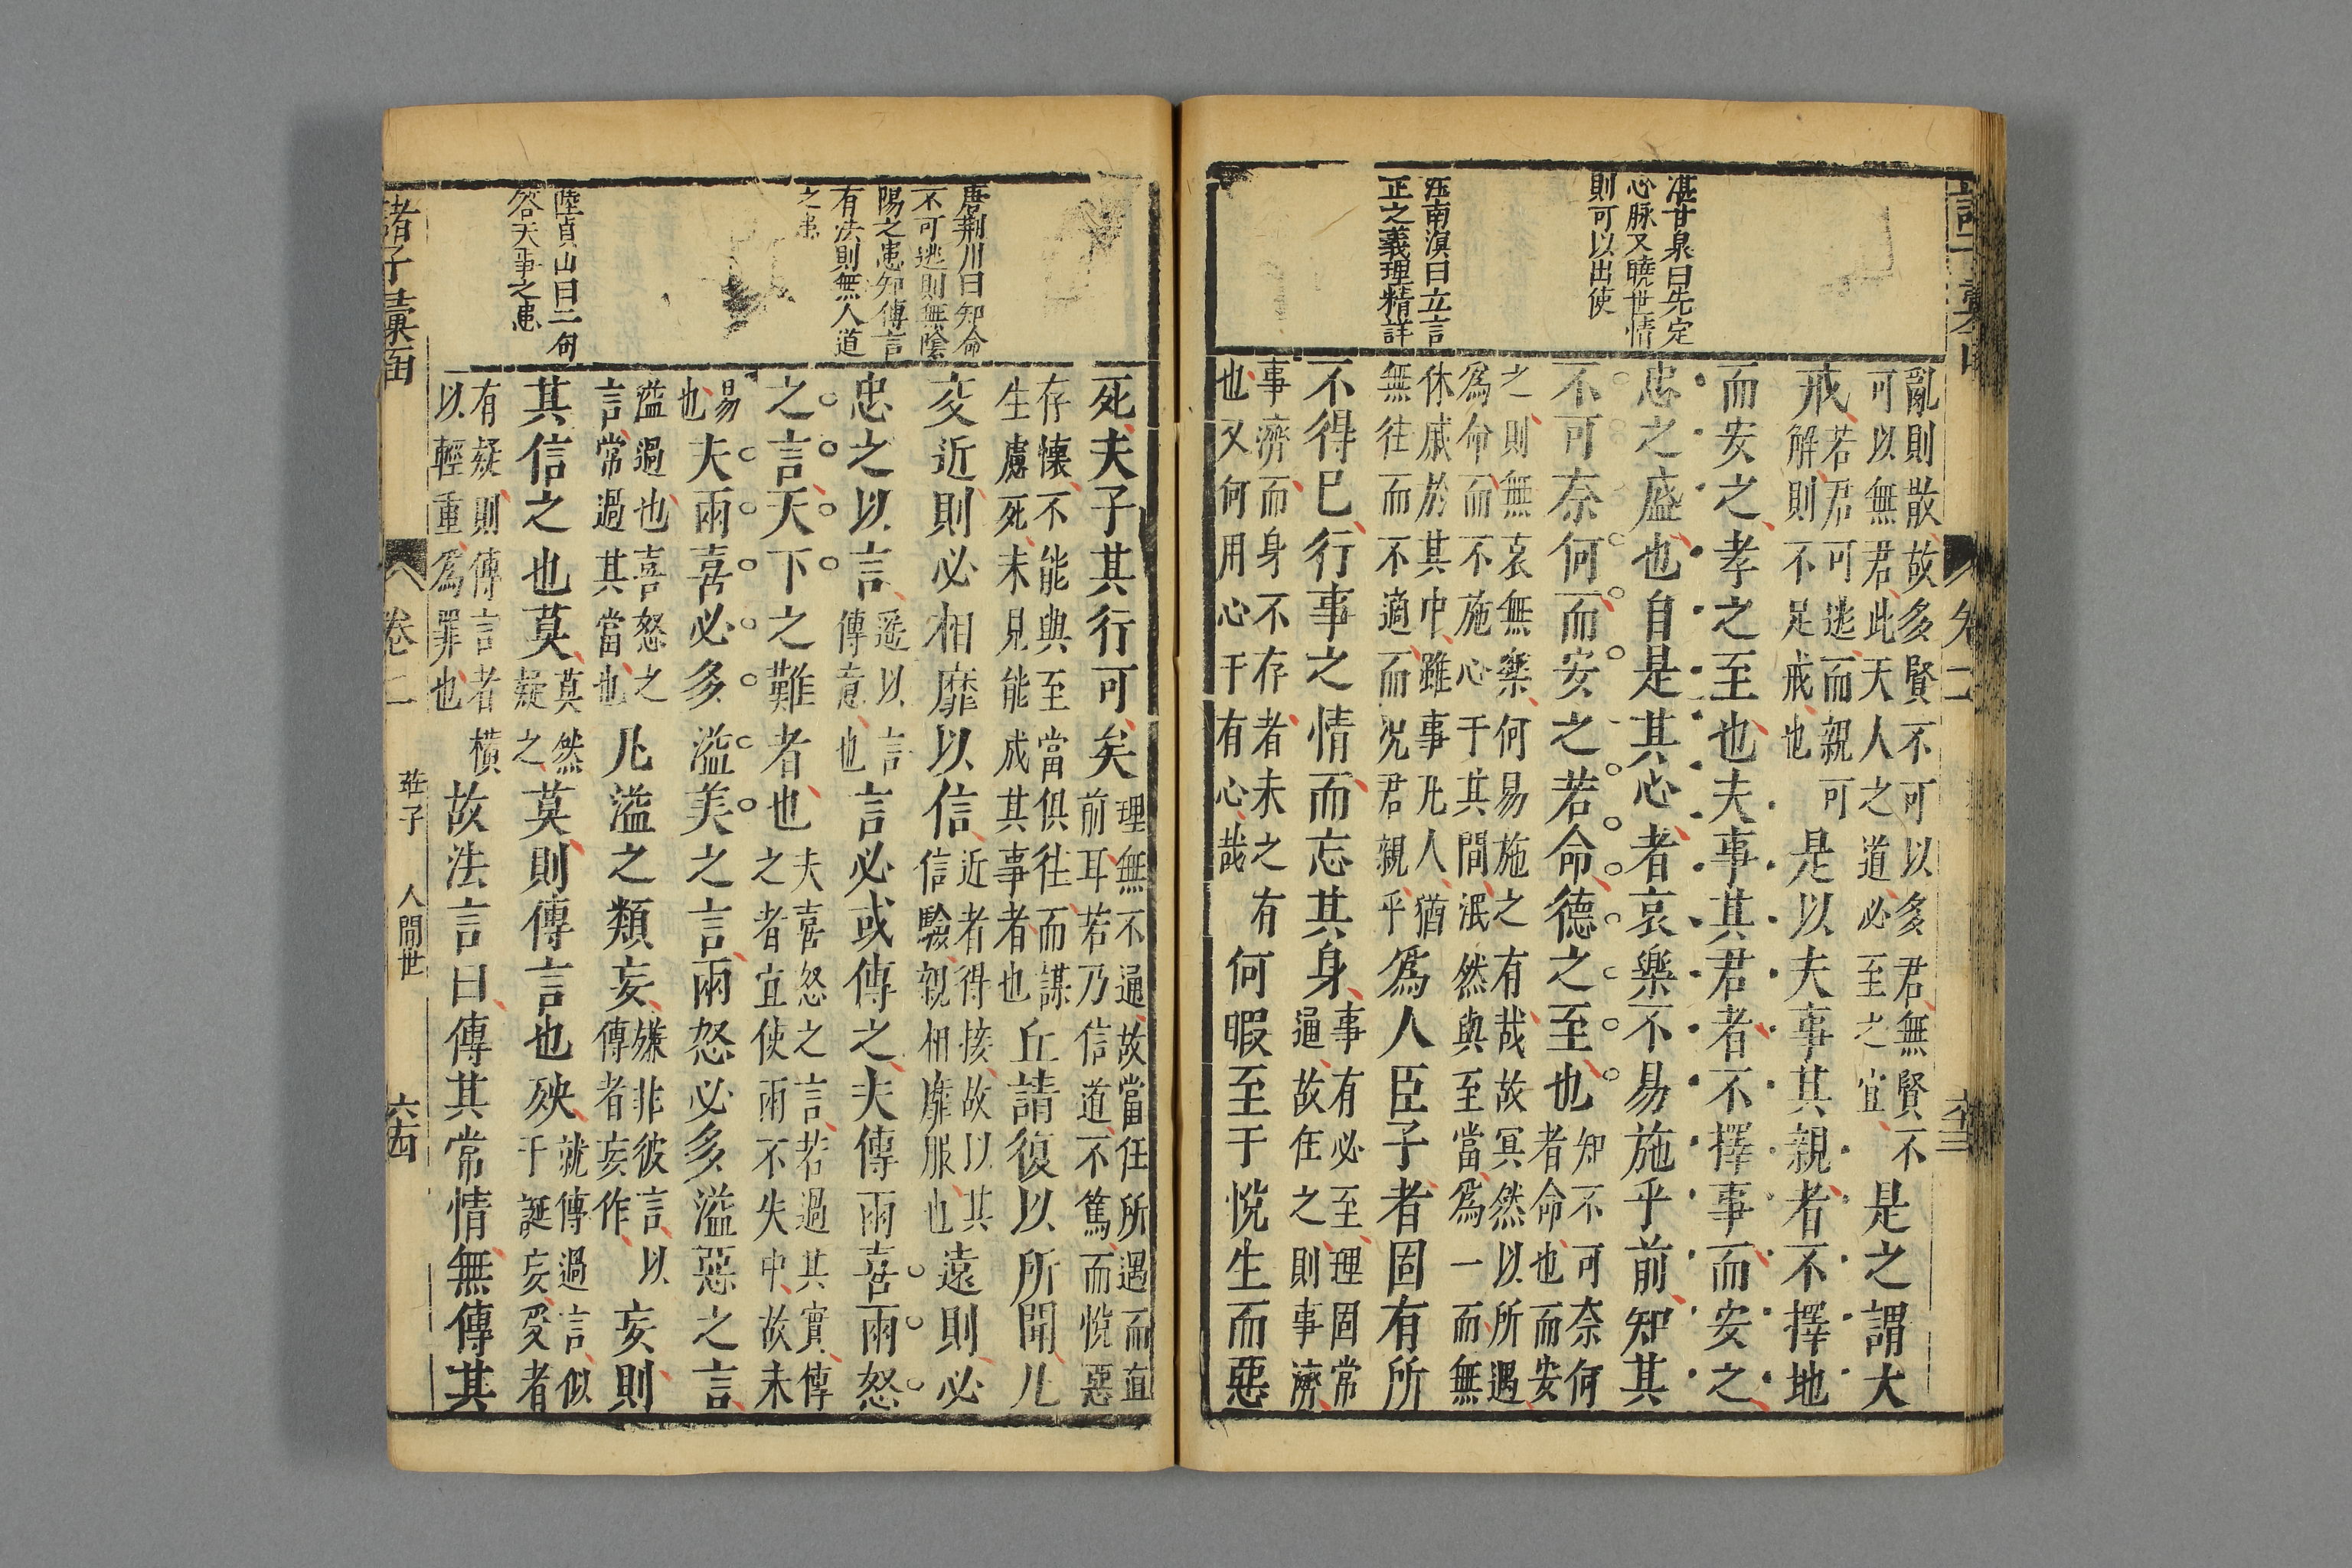 卷二
六十三
湛甘泉曰先定
心脉又曉世情
則可以出使
汪南溟曰立言
正之義理精詳
亂則散故多賢不可以多君無賢不
可以無君此天人之道必至之宜
是之謂大
戒
若君可逃而親可
解則不足戒也
是以夫事其親者不擇地
而安之孝之至也夫事其君者不擇事而安之
忠之盛也自是其心者哀樂不易施乎前知其
不可奈何而安之若命德之至也
知不可奈何
者命也而安
之則無哀無樂何易施之有哉故冥然以所遇
爲命而不施心于其間泯然與至當爲一而無
休戚於其中雖事凡人猶
無往而不適而况君親乎
爲人臣子者固有所
不得已行事之情而忘其身
事有必至理固常
通故任之則事濟
事濟而身不存者未之有
也又何用心于有心哉
何暇至于悅生而惡
唐荆川曰知命
不可逃則無陰
陽之患知傳言
有法則無人道
之患
陸貞山曰二句
答天事之患
死夫子其行可矣
理無不通故當任所遇而直
前耳若乃信道不篤而悅惡
存懷不能與至當俱往而謀
生慮死未見能成其事者也
丘請復以所聞凡
交近則必相靡以信
近者得接故以其
信驗親相靡服也
遠則必
忠之以言
遥以言
傳意也
言必或傳之夫傳兩喜兩怒
之言天下之難者也
夫喜怒之言若過其實傳
之者宜使兩不失中故未
易
也
夫兩喜必多溢美之言兩怒必多溢惡之言
溢過也喜怒之
言常過其當也
凡溢之類妄
嫌非彼言以
傳者妄作
妄則
其信之也莫
莫然
疑之
莫則傳言也殃
就傳過言似
于誕妄受者
有疑則傳言者橫
以輕重爲罪也
故法言曰傳其常情無傳其
諸子彙函
卷二
莊子
人間世
六十四